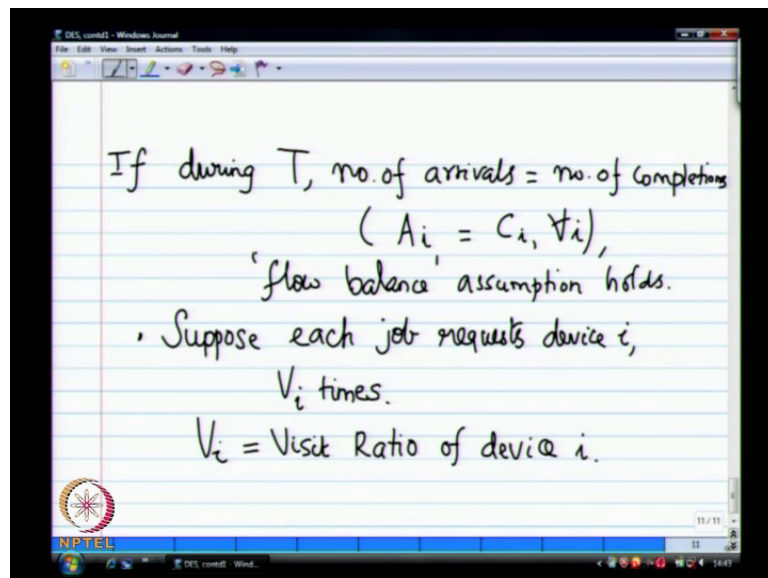 DES, contd1 - Windows Journal
File Edit View Insert Actions Tools Help
If during T, no. of arrivals = no. of completions
( Ai = Ci, ∀i),
'flow balance' assumption holds.
. Suppose each job requests device i,
Vi times.
Vi = Visit Ratio of device i.
11 / 11
NPTEL
11
DES, contd1 - Wind...
14:43